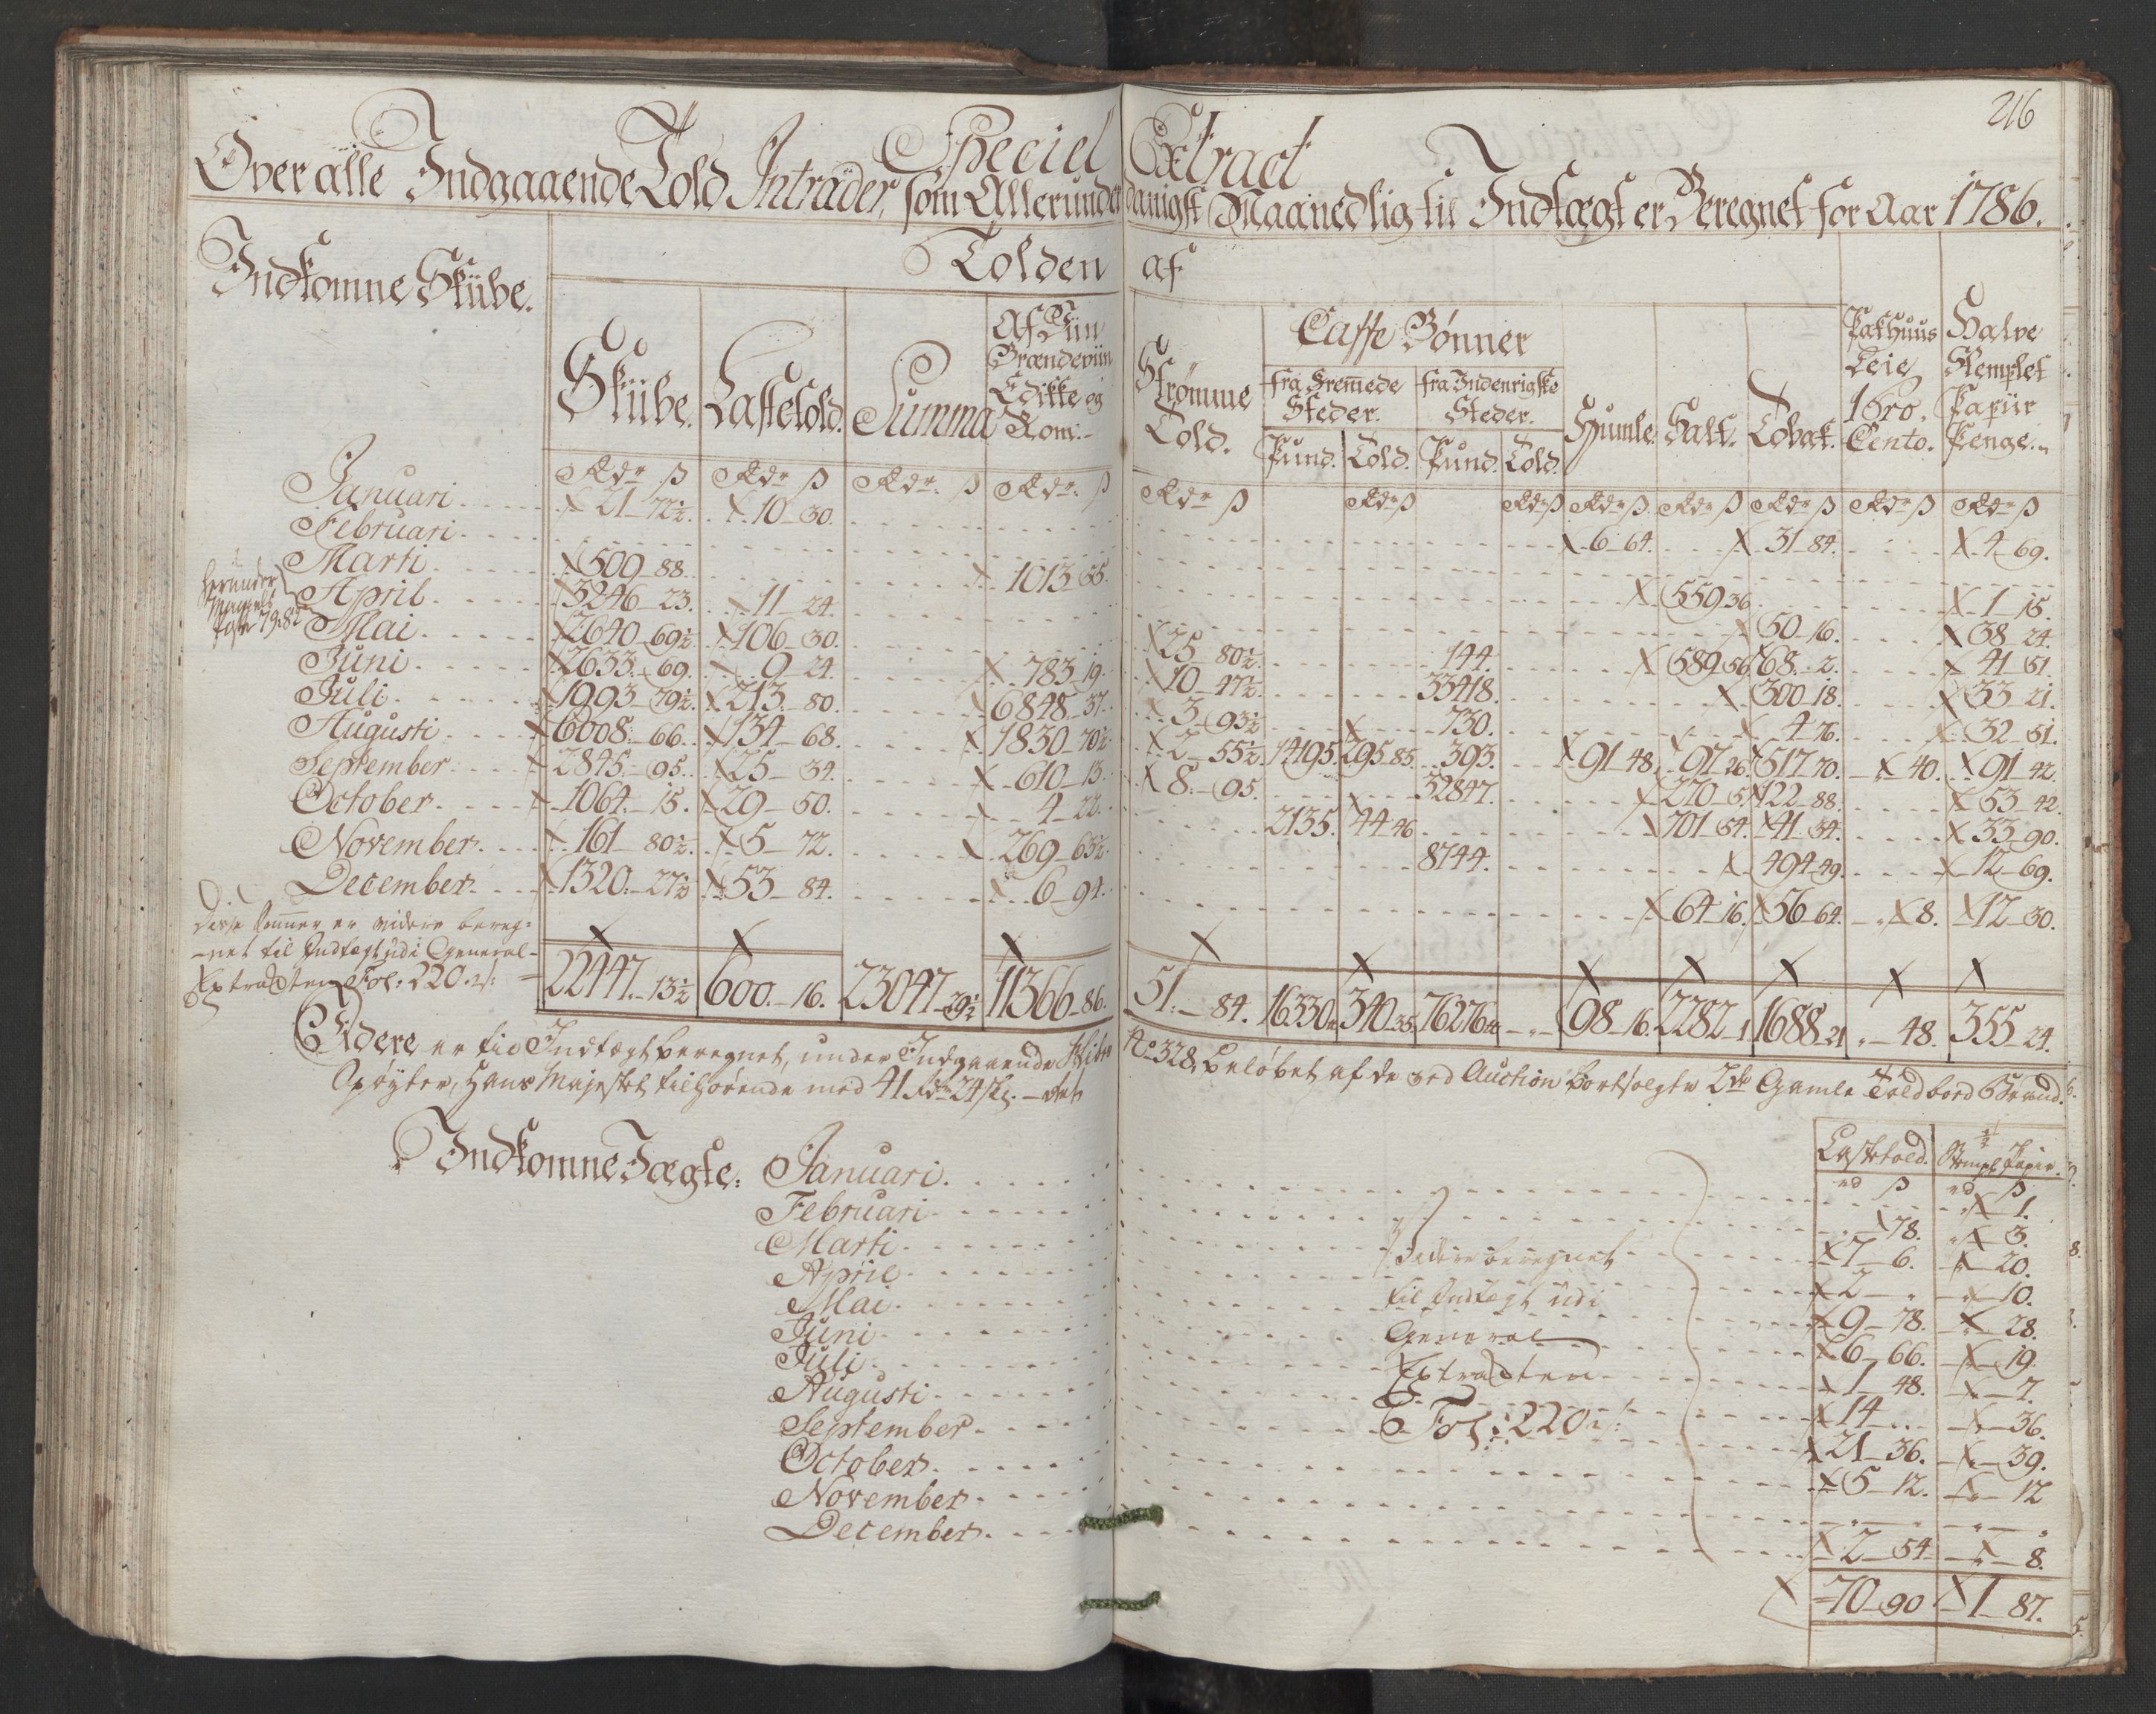 216
Speciel Extract
Over alle Indgaaende Told Intrader, som Allerunderdanigst Maanedlig til Indtægt er Beregnet for Aar 1786.
Indkomne Skibe.
Tolden af
Skibe. Lastetold. Summa Af Viin Brændeviin Edikke og Rom.
Strømme Told. Caffe Bønner Humle. Salt. Tobak. Pakhuus Leie 1 Pro Cento. Halve Stemplet Papiir Penge.
fra Fremmede Steder. fra Indenrigske Steder.
Pund. Told. Pund. Told.
Rdr ß Rdr ß Rdr ß Rdr ß Rdr ß Rdr ß Rdr ß Rdr ß Rdr ß Rdr ß Rdr ß Rdr ß
Januari 21 72½. 10 30. 6 64. 31 84. 4 69.
Februari
Marti 509 88. 1013 55. 559 36. 1 15.
April 3246 23. 11 24. 50 16. 38 24.
Mai 2640 69½ 106 30. 25 80½. 144. 589 56. 68 2. 41 51.
Juni 2633 69. 9 24. 783 19. 10 47½. 33418. 300 18. 33 21.
Juli 1993 79½. 213 80. 6848 37. 3 93½ 730. 4 76. 32 51.
Augusti 6008 66. 134 68. 1830 70½ 2 55½. 14195. 295 85. 393. 91 48. 97 26. 517 70. 40. 91 42.
September 2845 95. 25 34. 610 13. 8 95. 32847. 270 5. 122 88. 53 42.
October 1064 15. 29 50. 4 22. 2135. 44 46. 701 54. 41 34. 33 90.
November 161 80½. 5 72. 269 63½ 8744. 494 49. 12 69.
December 1320 27½ 53 84. 6 94. 64 16. 56 64. 8. 12 30.
22447 13½ 600 16. 23047 29½ 11366 86. 51 84. 16330. 340 35. 76276. 98 16. 2282 1. 1688 21. 48. 355 24.
herunder
Disse Summer er videre bereg-
-net til Indtægt udi General-
Extracten Fol: 220.
Videre er til Indtægt beregnet, under Indgaaende Skibe No 328, beløbet af de ved Auction bortsolgte 2de Gamle Toldbord
Hans Majestet tilhørende med 41 Rdr 24 ß.
Indkomne Jægte:
Lastetold. ½ Stempl: Papir.
rd ß rd ß
Januari. 1.
Februari 78. 3.
Marti 7 6. 20.
April 2 10.
Mai 9 78. 28.
Juni 6 66. 19.
Juli 1 48. 7.
Augusti 14 36.
September 21 36. 39.
October 5 12. 12
November
December 2 54 8.
70 90 1 87.
Videre beregnet
til Indtægt udi
General
Extracten
Fol: 220